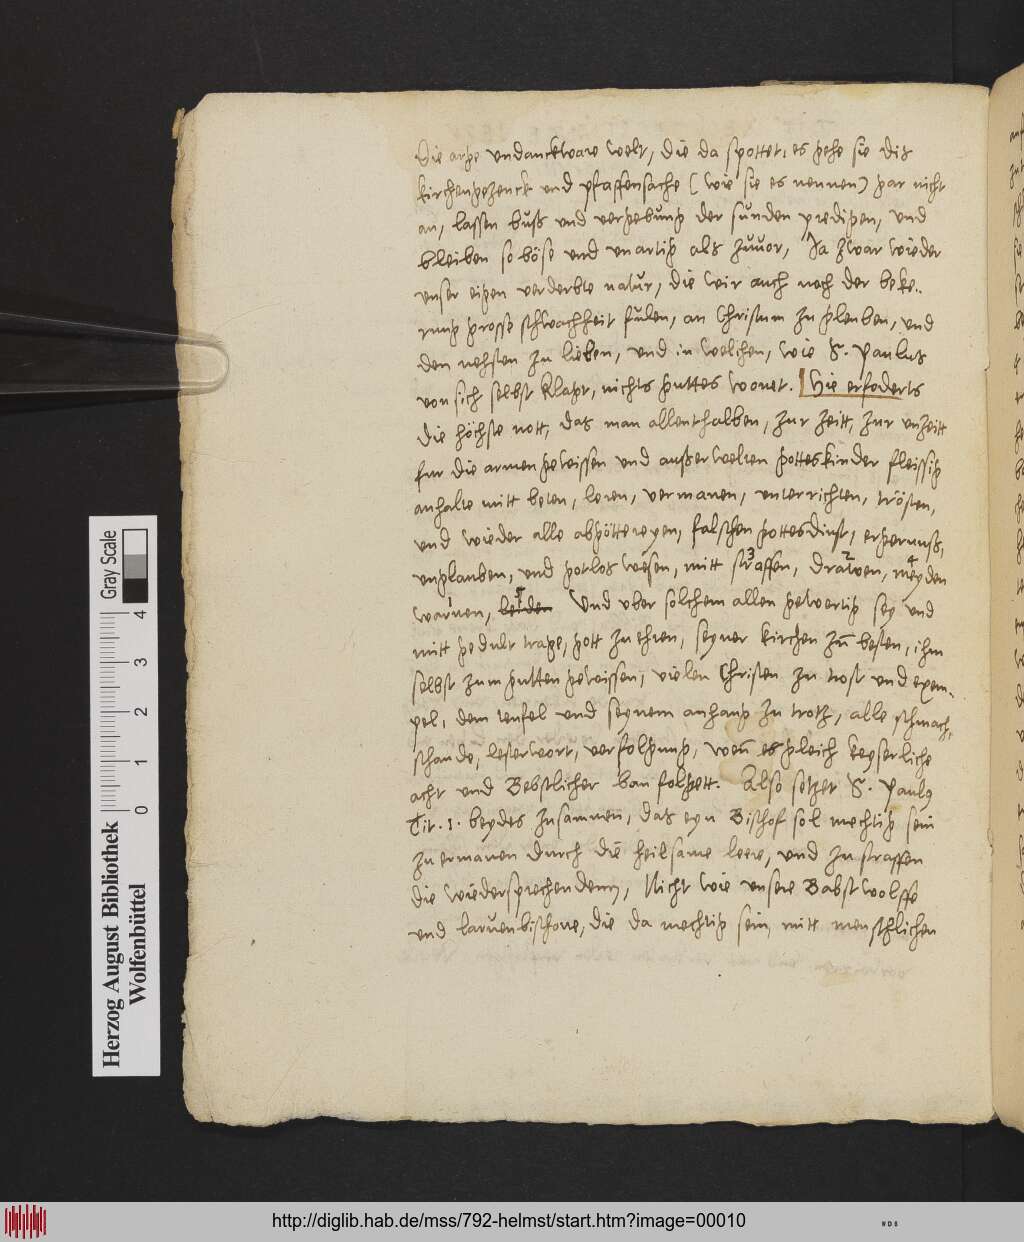 die arge undanckbare welt, die da spottet, es gehe sie dis
kirchengezenck und pfaffensache (wie sie es nennen) gar nicht
an, lassen buß und vergebung der sunden predigen, und
bleiben so böse und unartig als zuuor, Ja zwar wieder
unser eigen verderbte natur, die wir auch nach der beke..
rung grosse schwachheit fulen, an Christum zu gleuben, und
den nehsten zu lieben, und in welchen, wie S. Paulus
von sich selbst klagt, nichts guttes wonet. Hie erfoderts
die höchste nott, das man allenthalben, zur zeitt, zur unzeitt
fur die armen gewissen und außerwelten gotteskinder fleissig
anhalte mitt beten, leren, vermanen, unterrichten, trösten,
und wieder alle abgöttereyen, falschen gottesdinst, ergernuß,
unglauben, und gotlos wesen, mitt straffen, drawen, meyden
3 2 4
warnen, leiden Und uber solchem allen gewertig sey und
mitt gedult trage, gott zu ehren, seyner kirchen zu besten, ihm
selbst zum gutten gewissen, vielen Christen zu trost und exem-
pel, dem teufel und seynem anhang zu trotz, alle schmach,
schande, lesterwort, verfolgung, wen̄ es gleich keyserliche
acht und Bebstlicher ban folgett. Also setzet S. Paulus
Tit. 1. beydes zusammen, das eyn Bischof sol mechtig sein
zu ermanen durch die heilsame lere, und zu straffen
die wiedersprechenden, Nicht wie unsere Babstwolffe
und laruenbischoue, die da mechtig sein mitt menschlichen
Herzog August Bibliothek
Wolfenbüttel
Gray Scale
0 1 2 3 4
http://diglib.hab.de/mss/792-helmst/start.htm?image=00010